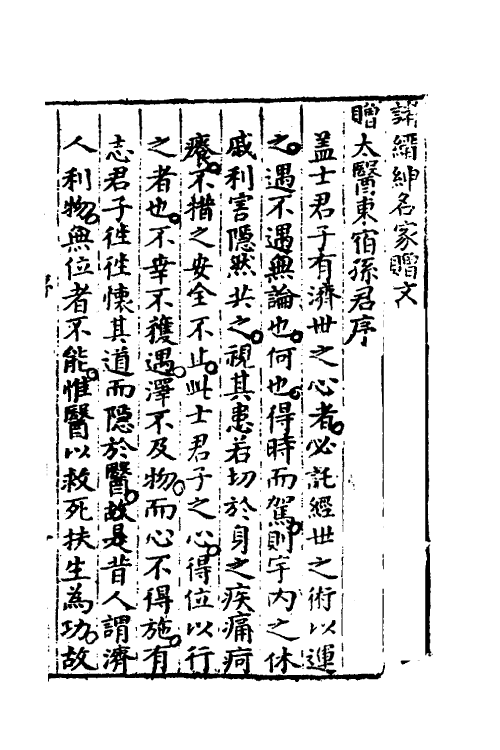 諸縉紳名家贈文
贈太醫東宿孫君序
盖士君子有濟世之心者必託經世之術以運
之遇不遇無論也何也得時而駕則宇內之休
戚利害隱然共之視其患若切於身之疾痛疴
癢不措之安全不止此士君子之心得位以行
之者也不幸不獲遇澤不及物而心不得施有
志君子徃徃懷其道而隱於醫故是昔人謂濟
人利物無位者不能惟醫以救死扶生為功故
序